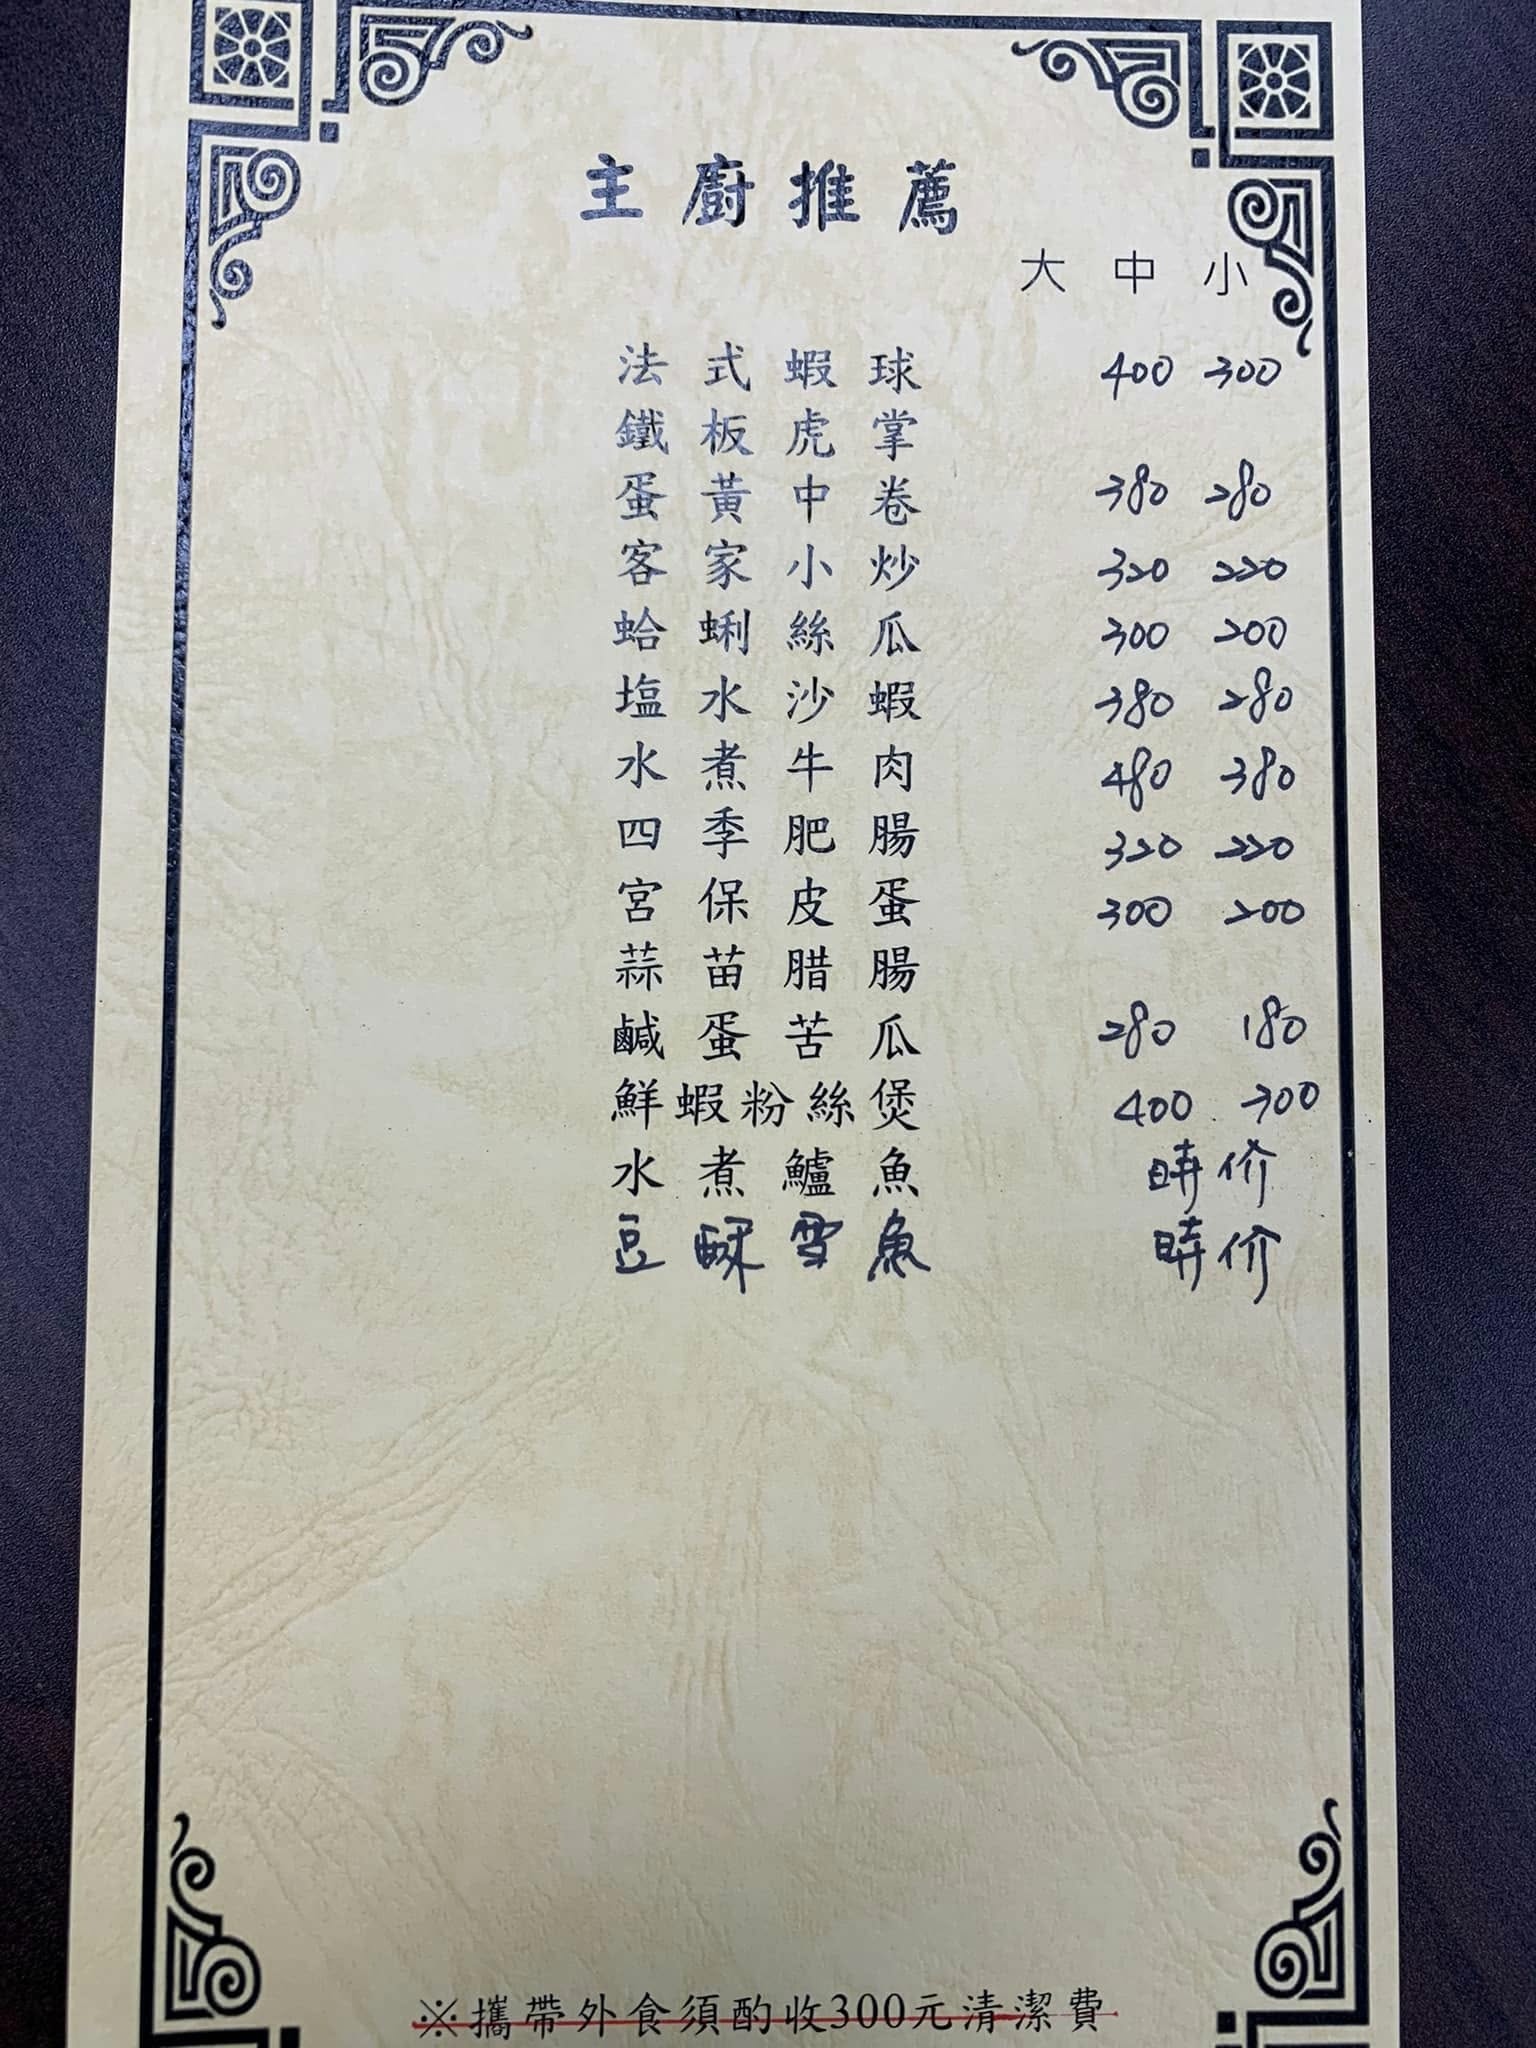 主廚推薦
大 中 小
法式蝦球 400 300
鐵板虎掌
蛋黃中卷 380 280
客家小炒 320 220
蛤蜊絲瓜 300 200
塩水沙蝦 380 280
水煮牛肉 480 380
四季肥腸 320 220
宮保皮蛋 300 200
蒜苗腊腸
鹹蛋苦瓜 280 180
鮮蝦粉絲煲 400 300
水煮鱸魚 時价
豆酥雪魚 時价
※攜帶外食須酌收300元清潔費